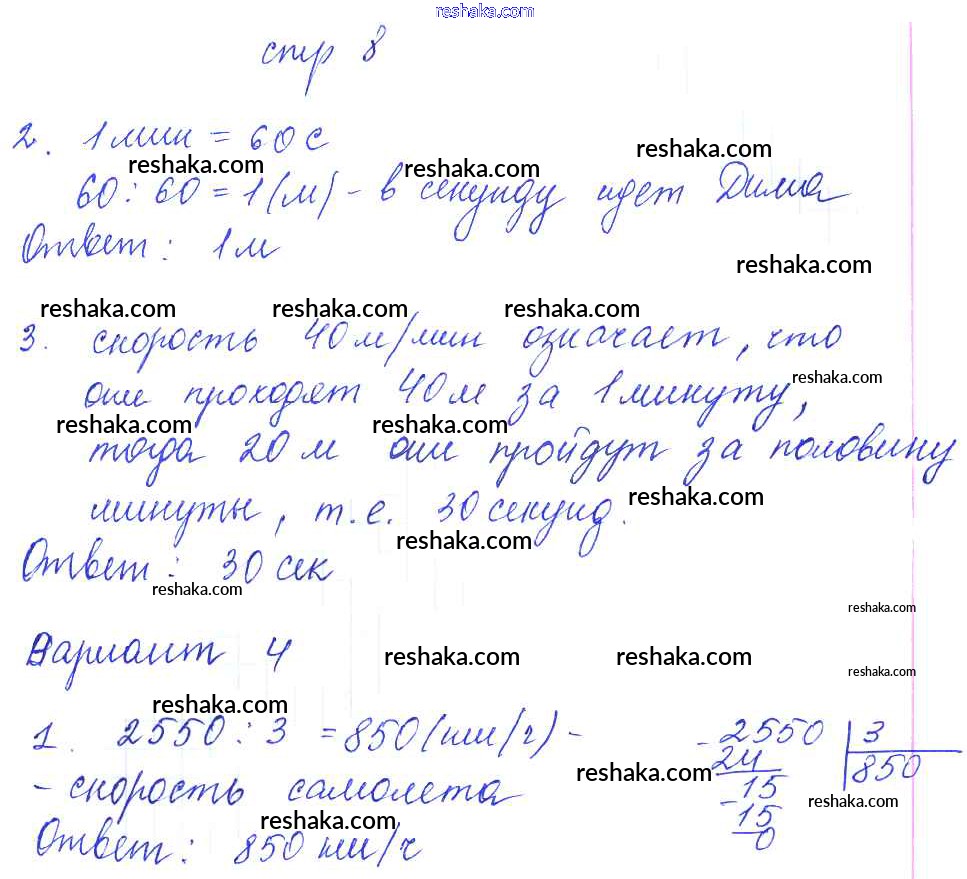 reshaka.com
стр 8
2. 1 мин = 60 с
reshaka.com reshaka.com reshaka.com
60 : 60 = 1 (м) - в секунду идет Дима
Ответ: 1 м
reshaka.com
reshaka.com reshaka.com reshaka.com
3. скорость 40 м/мин означает, что
они проходят 40 м за 1 минуту,
reshaka.com
reshaka.com reshaka.com
тогда 20 м они пройдут за половину
минуты, т.е. 30 секунд.
reshaka.com
reshaka.com
Ответ: 30 сек
reshaka.com
reshaka.com
Вариант 4
reshaka.com reshaka.com
reshaka.com
reshaka.com
1. 2550 : 3 = 850 (км/ч) -
- скорость самолета
reshaka.com
Ответ: 850 км/ч
reshaka.com
- 2550 3
24 850
- 15
15
0
reshaka.com